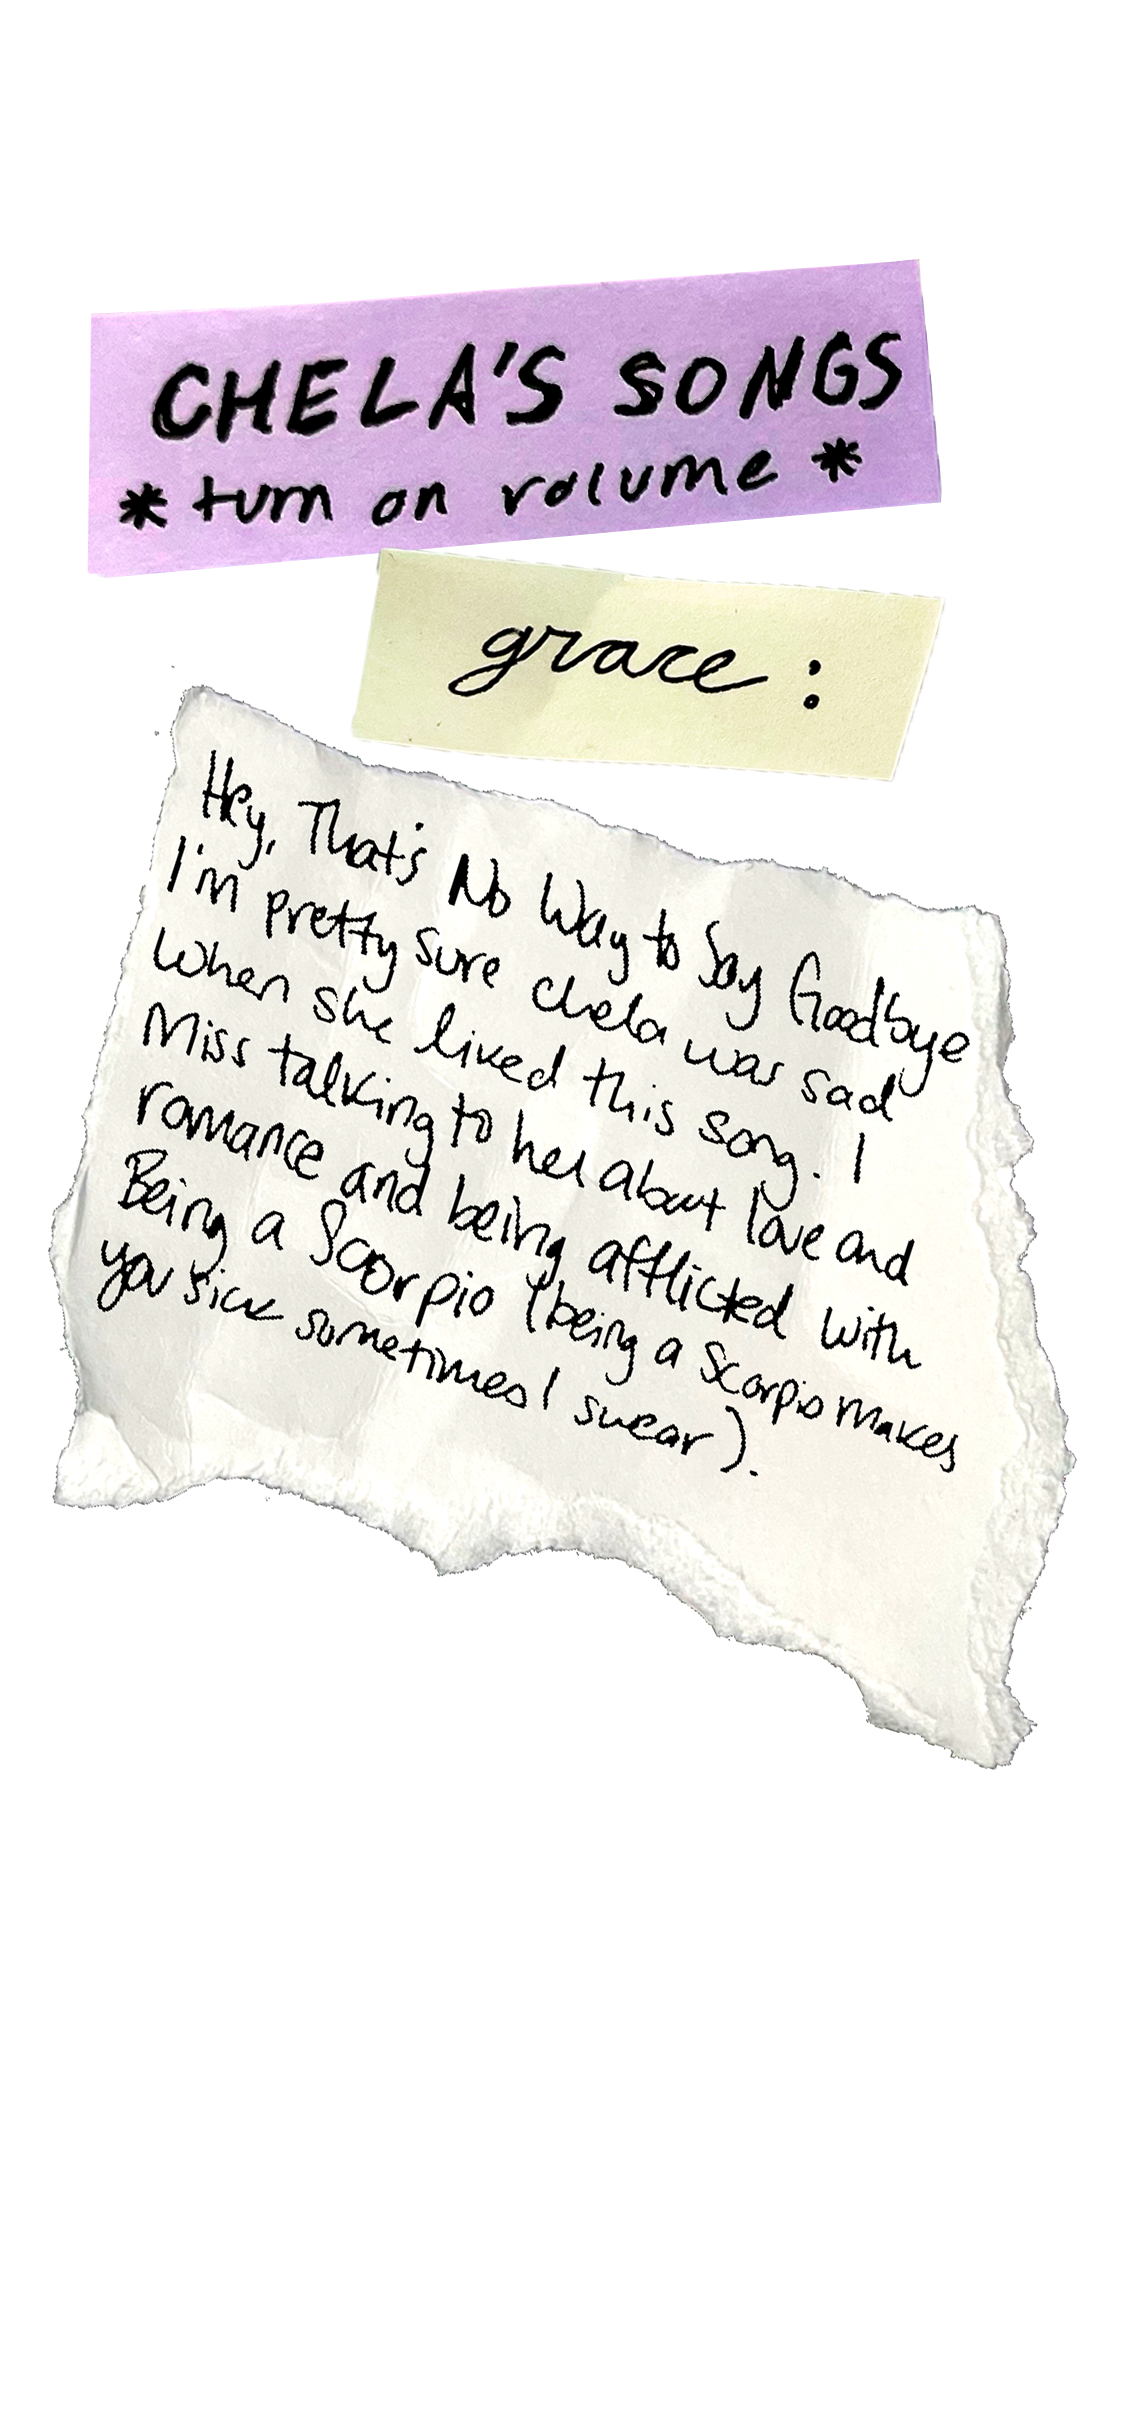 CHELA'S SONGS
* turn on volume *
grace :
Hey, That's No Way to Say Goodbye
I'm pretty sure chela was sad
when she liked this song. I
Miss talking to her about love and
romance and being afflicted with
Being a Scorpio (being a scorpio makes
you sick sometimes I swear).